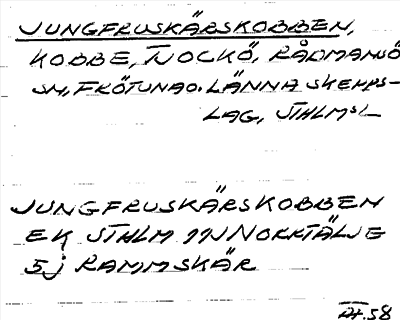 JUNGFRUSKÄRSKOBBEN,
KOBBE, TJOCKÖ, RÅDMANSÖ
SN, FRÖTUNA O. LÄNNA SKEPPS-
LAG, STHLMS L
JUNGFRUSKÄRSKOBBEN
EK STHLM 11J NORRTÄLJE
5j RAMMSKÄR
58